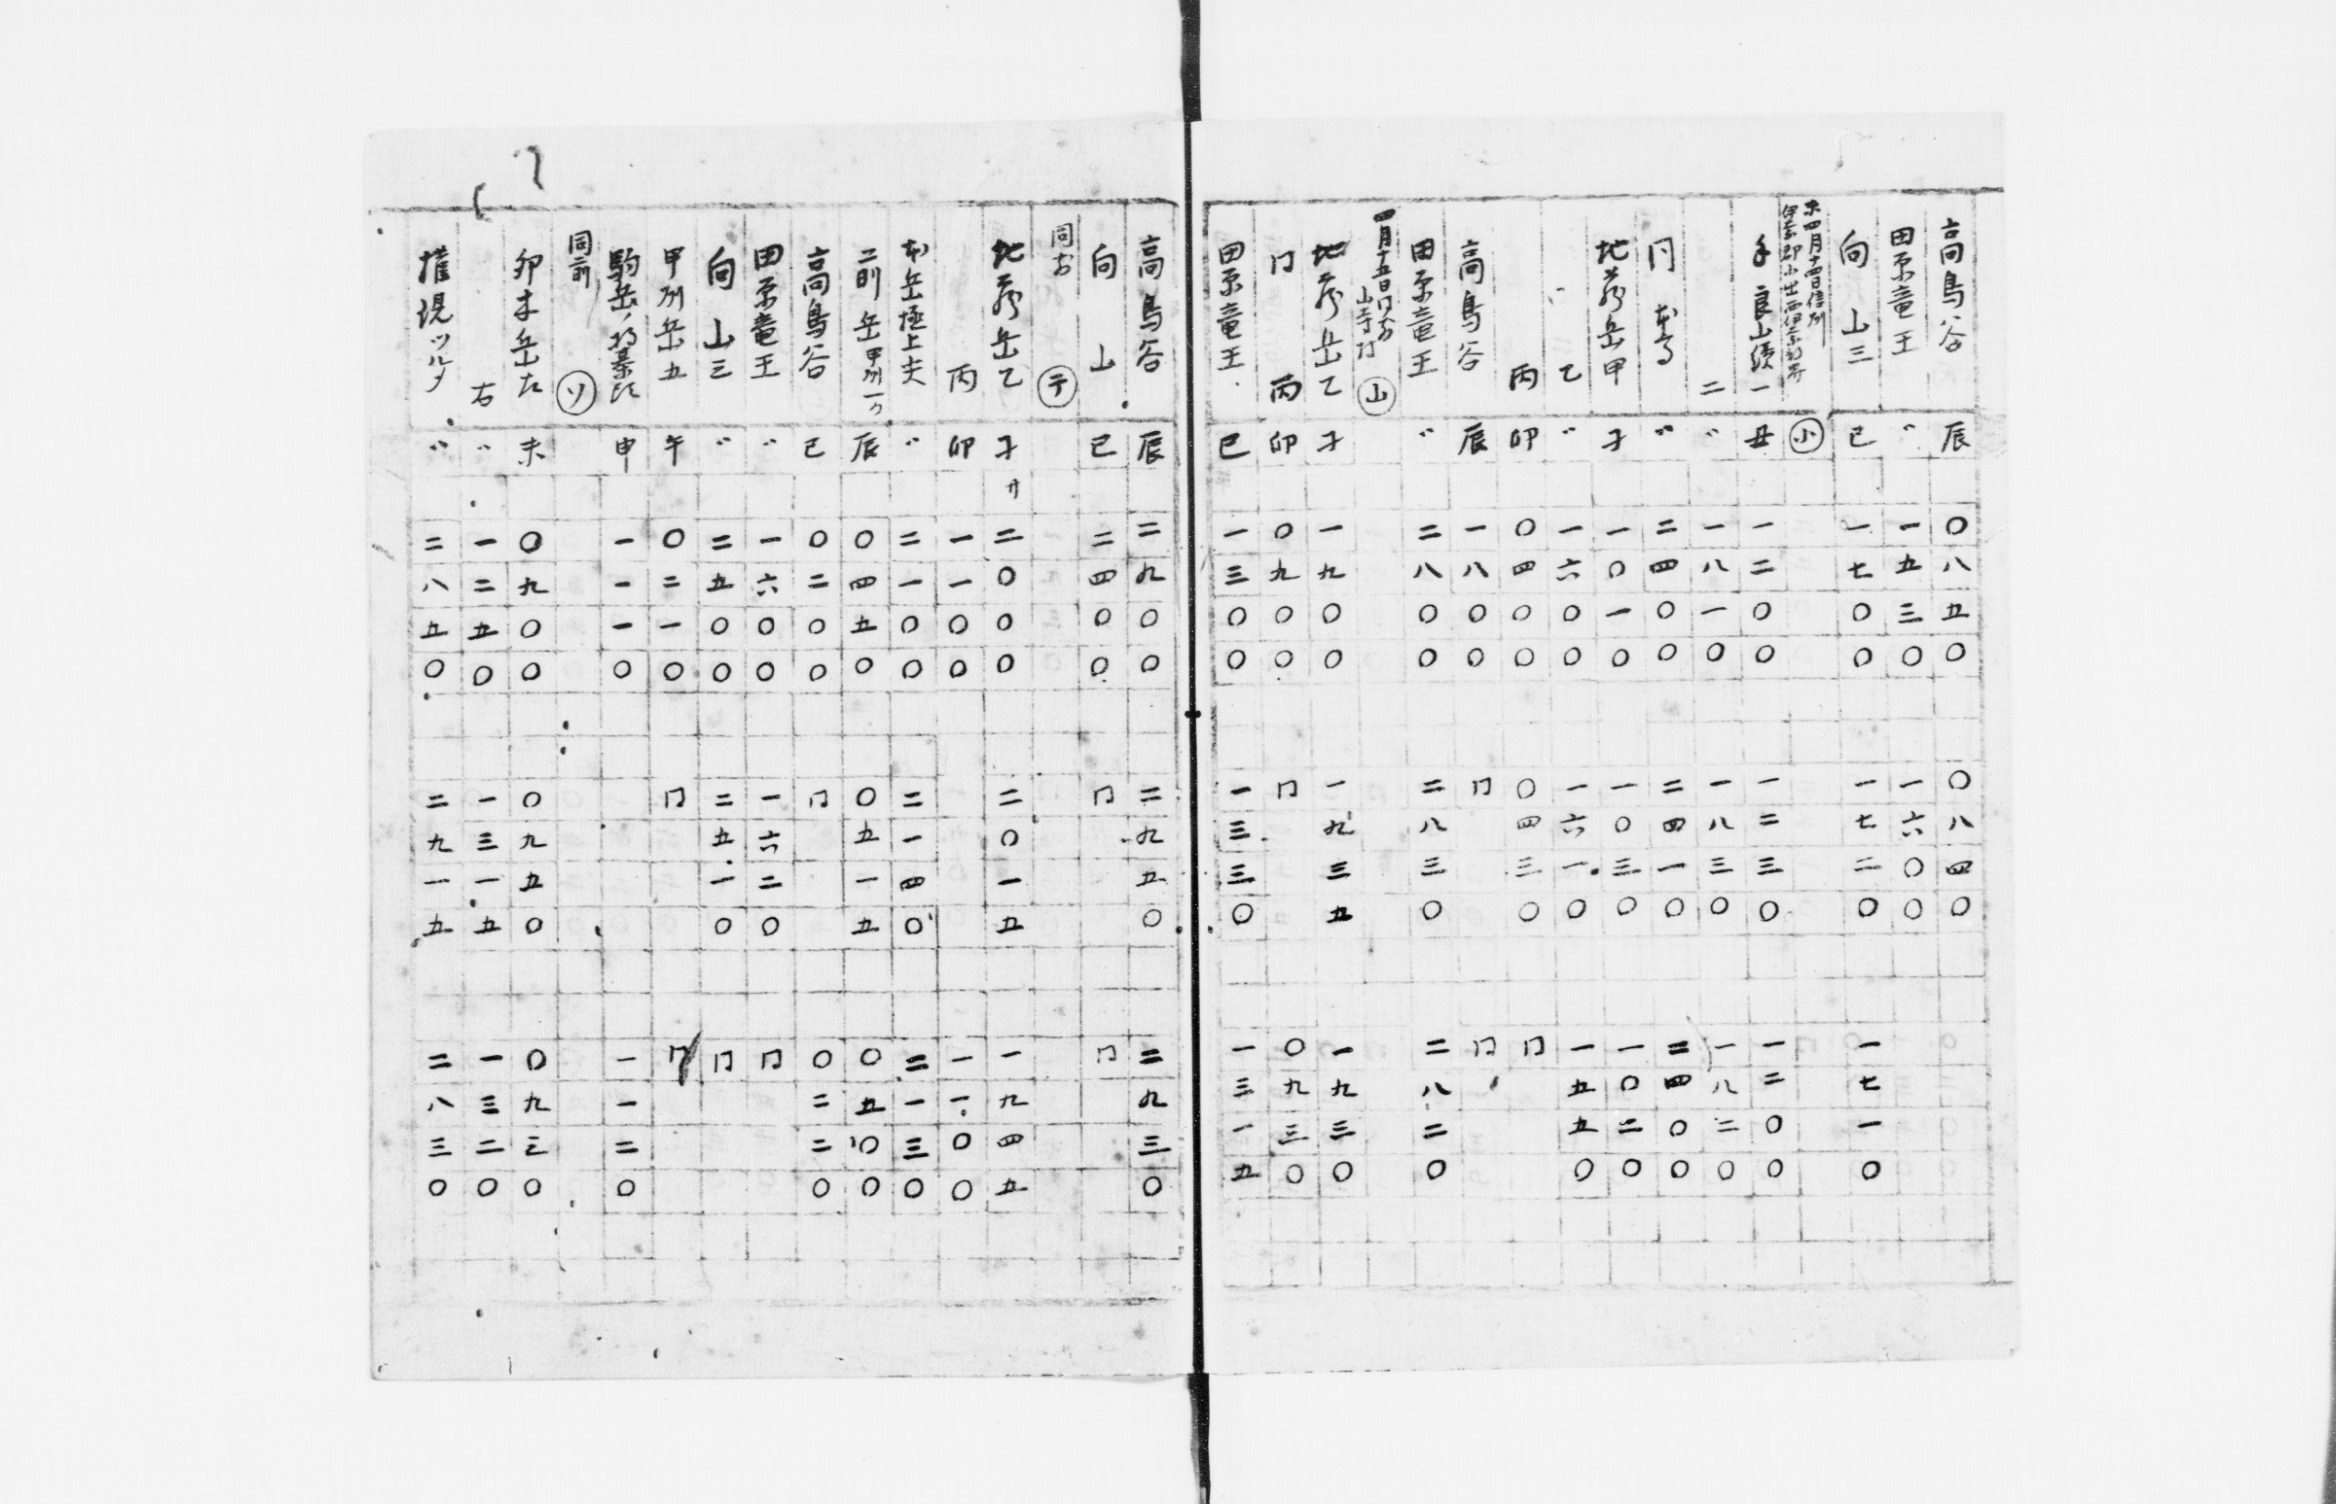 高鳥谷 辰 〇八五〇 〇八四〇
田原竜王 〃 一五三〇 一六〇〇
向山三 巳 一七〇〇 一七二〇 一七一〇
未四月十四日信州 小
手良山続一 丑 一二〇〇 一二三〇 一二〇〇
二 〃 一八一〇 一八三〇 一八二〇
〃 二四〇〇 二四一〇 二四〇〇
地蔵岳甲 子 一〇一〇 一〇三〇 一〇二〇
〃乙 〃 一六〇〇 一六一〇 一五五〇
丙 卯 〇四〇〇 〇四三〇 冂
高鳥谷 辰 一八〇〇 冂 冂
田原竜王 〃 二八〇〇 二八三〇 二八二〇
四月十五日 山
地蔵岳乙 子 一九〇〇 一九三五 一九三〇
冂 丙 卯 〇九〇〇 冂 〇九三〇
田原竜王 巳 一三〇〇 一三三〇 一三一五
高鳥谷 辰 二九〇〇 二九五〇 二九三〇
向山 巳 二四〇〇 冂 冂
同 テ
地蔵岳乙 子 二〇〇〇 二〇一五 一九四五
丙 卯 一一〇〇 一一〇〇
本岳極上夫 〃 二一〇〇 二一四〇 二一三〇
二則岳甲州一ヶ 辰 〇四五〇 〇五一五 〇五〇〇
高鳥谷 巳 〇二〇〇 冂 〇二二〇
田原竜王 〃 一六〇〇 一六二〇 冂
向山三 〃 二五〇〇 二五一〇 冂
甲州岳五 午 〇二一〇 冂 冂
駒岳ノ 申 一一一〇 一一二〇
同前 ソ
卯木岳左 未 〇九〇〇 〇九五〇 〇九三〇
右 〃 一二五〇 一三一五 一三二〇
権現ツルタ 〃 二八五〇 二九一五 二八三〇